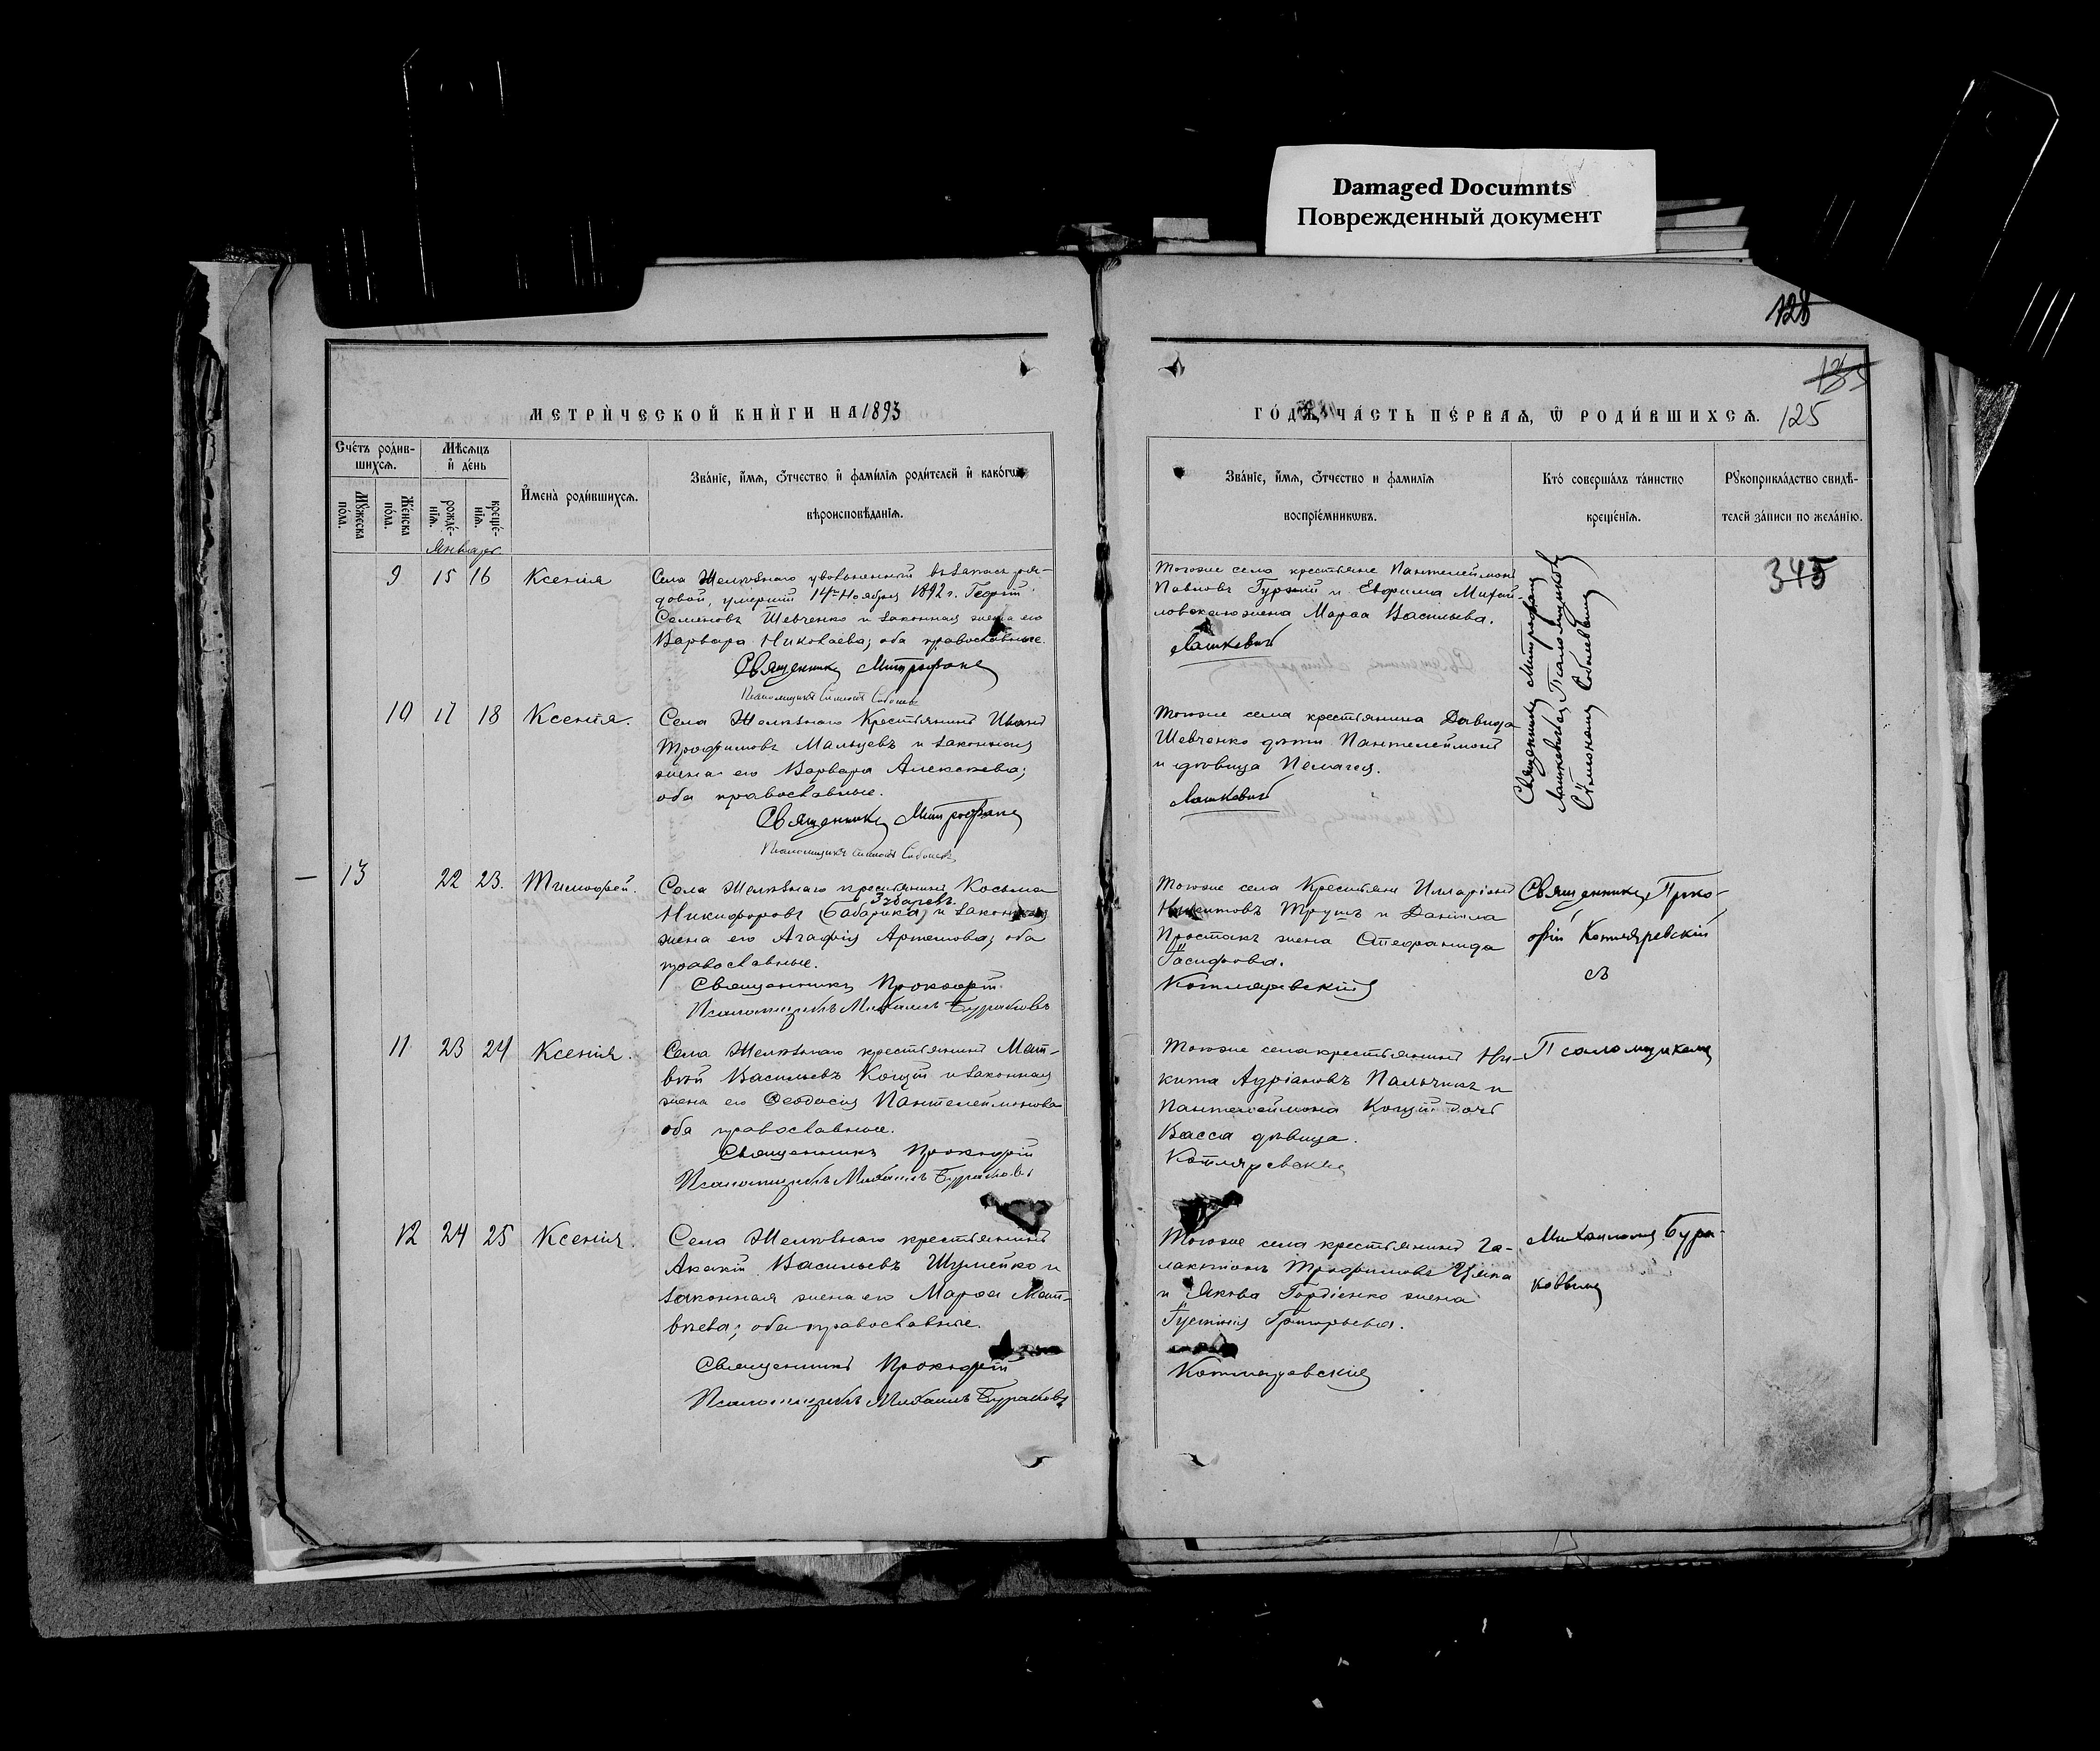 Damaged Documnts
Поврежденный документ
128
135
125
МЕТРИ́ЧЕСКОЙ КНИ́ГИ НА 1893
ГО́ДЪ, ЧА́СТЬ ПЕ́РВАѦ, Ѿ РОДИ́ВШИХСѦ.
Сче́тъ роди́в-
шихсѧ.
Мꙋ́жеска по́ла.
Же́нска по́ла.
Мѣ́сѧцъ
и҆ де́нь
рожде́-
нїѧ.
креще́-
нїѧ.
И҆мена̀ роди́вшихсѧ.
Зва́нїе, и҆́мѧ, ѻ҆́тчество и҆ фами́лїѧ роди́телей и҆ како́гѡ
вѣроисповѣ́данїѧ.
Зва́нїе, и҆́мѧ, ѻ҆́тчество и фами́лїѧ
воспрїе́мникωвъ.
Кто́ соверша́лъ та́инство
креще́нїѧ.
Рꙋкоприкла́дство свидѣ́-
телей за́писи по жела́нїю.
Январь.
345
9 15 16 Ксенія
Села Желѣзнаго уволенный въ запасъ ря-
довой, умершій 14го Ноября 1892 г. Георгій
Семеновъ Шевченко и законная жена его
Варвара Николаева; оба православные.
Священникъ Митрофанъ
Псаломщикъ Симеонъ
Тогоже села крестьяне Пантелеймонъ
Павловъ и Евфима Михай-
ловскаго жена Марѳа Васильева.
Лашкевичъ
Священникъ Митрофанъ
Лашкевичъ Псаломщикомъ
Симеономъ
10 17 18 Ксенія.
Села Желѣзнаго Крестьянинъ Иванъ
Трофимовъ Мальцевъ и законная
жена его Варвара Алексѣева;
оба православные.
Священникъ Митрофанъ
Псаломщикъ Симеонъ
Тогоже села крестьянина Давида
Шевченко дѣти Пантелеймонъ
и дѣвица Пелагея.
Лашкевичъ
13 22 23. Тимофей.
Села Желѣзнаго крестьянинъ Косьма
Зубаревъ.
Никифоровъ (Бабарика) и законная
жена его Агафія Артемова; оба
православные.
Священникъ Прокофій
Псаломщикъ Михаилъ Бураковъ
Тогоже села Крестьяне Илларіонъ
Трушъ и Даніила
Простакъ жена Стефанида
Іосифова.
Котляревскій
Священникъ Проко-
фій Котляревскій
съ
11 23 24 Ксенія.
Села Желѣзнаго крестьянинъ Мат-
вѣй Васильевъ Коцуй и законная
жена его Ѳеодосія Пантелеймонова
оба православные.
Священникъ Прокофій
Псаломщикъ Михаилъ Бураковъ
Тогоже села крестьянинъ Ни-
кита Адріановъ Пальчикъ и
Пантелеймона Коцуй дочь
Васса дѣвица.
Котляревскій
Псаломщикомъ
12 24 25 Ксенія.
Села Желѣзнаго крестьянинъ
Акакій Васильевъ Шумейко и
законная жена его Марѳа Мат-
вѣева; оба православные.
Священникъ Прокофій
Псаломщикъ Михаилъ Бураковъ
Тогоже села крестьянинъ Га-
лактіонъ Трофимовъ
и Якова Гордіенко жена
Іустинія Григорьева.
Котляревскій
Михаиломъ Бура-
ковымъ